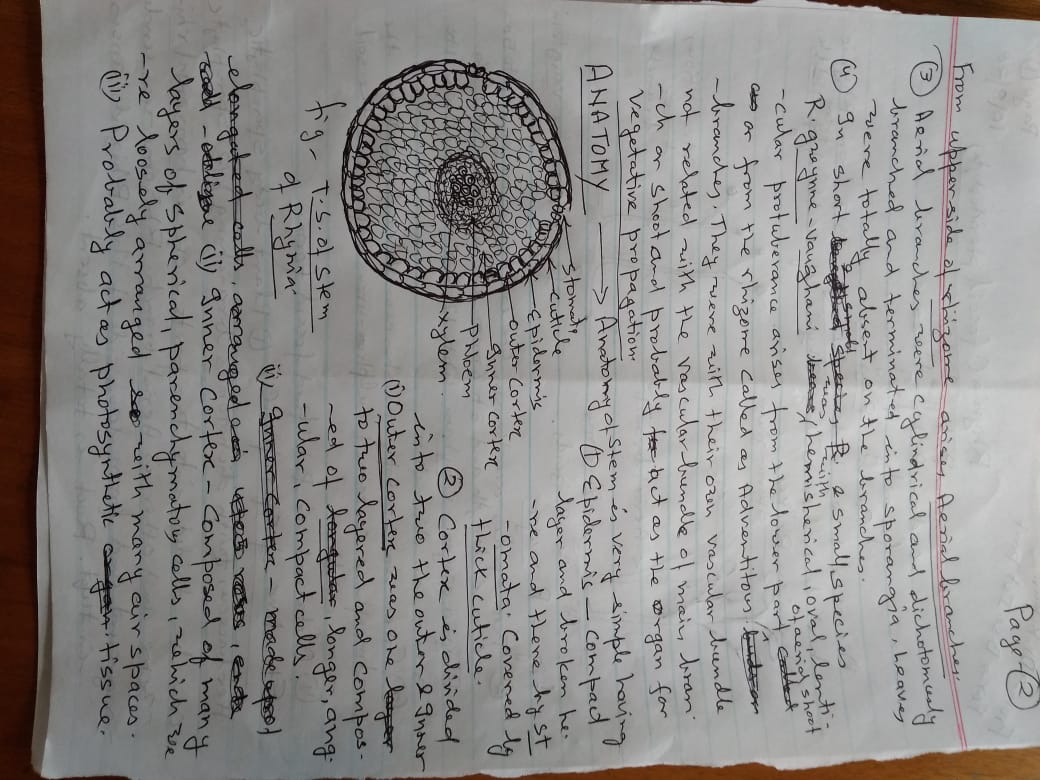 Page - 2
From upperside of rhizome arises Aerial branches.
③ Aerial branches were cylindrical and dichotomously
branched and terminated into sporangia, leaves
were totally absent on the branches.
④ In short small species
R. gwynne-vaughani was with hemispherical, oval, lenti-
-cular protuberance arises from the lower part of aerial shoot
or from the rhizome called as Adventitous
-branches. They were with their own vascular bundle
not related with the vascular bundle of main, bran-
-ch or shoot and probably act as the organ for
vegetative propagation.
ANATOMY → Anatomy of stem is very simple having
① Epidermis - compact
layer and broken he-
-re and there by st
-omata. Covered by
thick cuticle.
② Cortex is divided
into two the outer & inner
(i) Outer cortex was one
to two layered and compos-
-ed of longer, ang-
-ular, compact cells.
stomate
cuticle
Epidermis
outer cortex
inner cortex
phloem
xylem
fig - T.S. of stem
of Rhynia
ii) Inner cortex - made
elongated cells, arranged
(ii) Inner Cortex - Composed of many
layers of spherical, parenchymatous cells, which we
-re loosely arranged with many air spaces.
(iii) Probably act as photosynthetic tissue.